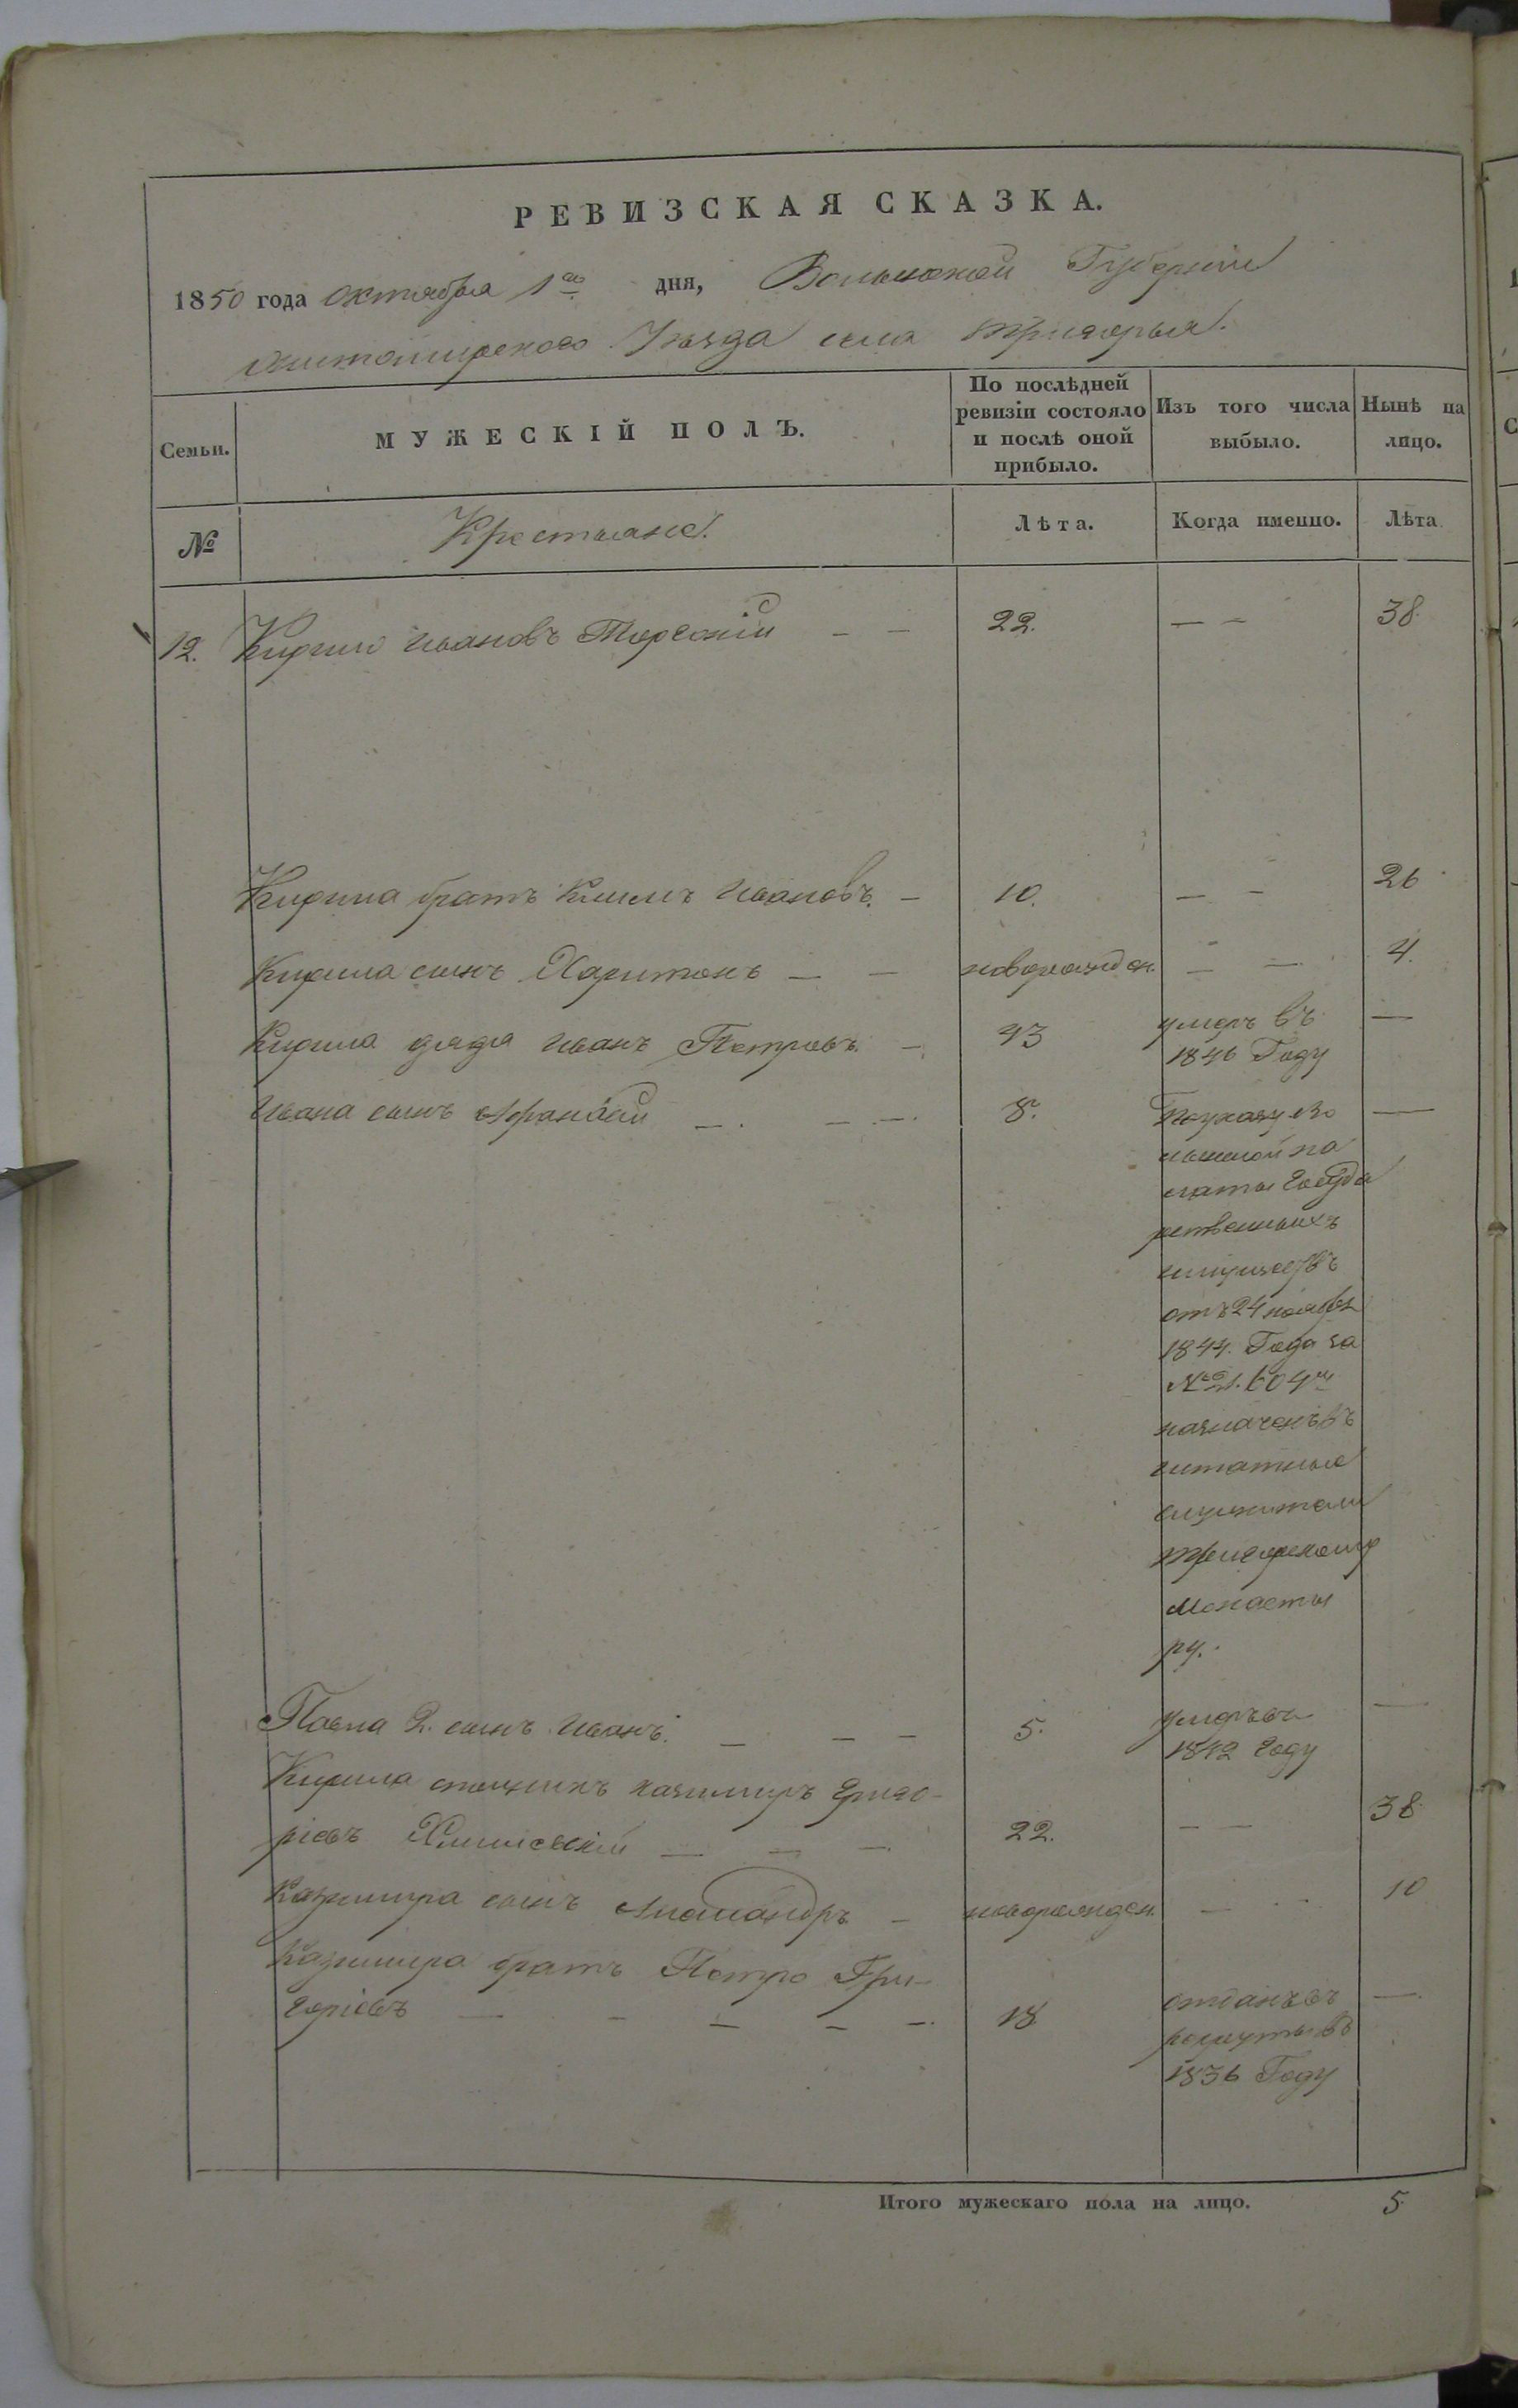 РЕВИЗСКАЯ СКАЗКА.
1850 года Октября 1го дня, Волынской Губерніи
Житомирского Уезда села Тригорья.
Семьи.
МУЖЕСКІЙ ПОЛЪ.
По послѣдней
ревизіи состояло
и послѣ оной
прибыло.
Изъ того числа
выбыло.
Нынѣ на
лицо.
№
Крестьяне.
Лѣта.
Когда именно.
Лѣта
12. Кирило Ивановъ — — 22. — — 38.
Кирила братъ Климъ Ивановъ. — 10. — — 26
Кирила сынъ Харитонъ — — новорожден. — — 4.
Кирила дядя Иванъ Петровъ. — 43 умеръ въ —
1846 Году
Ивана сынъ — — — 8. По указу Во —
лынской па
латы Государ
рственныхъ
имуществъ
отъ 24 ноября
1844. Года за
№ 21.604м
назначенъ въ
штатные
служители
Тригорскому
Монасты
рю.
Павла 2. сынъ Иванъ. — — — 5. умеръ въ —
1842 Году
Кирила Казимиръ Григо-
ріевъ — — — 22. — — 38.
Казимира сынъ Александръ — новорожден. — — 10
Казимира братъ Петро Гри-
горіевъ — — — — — 18 отданъ въ —
рекруты въ
1836 Году
Итого мужескаго пола на лицо. 5.